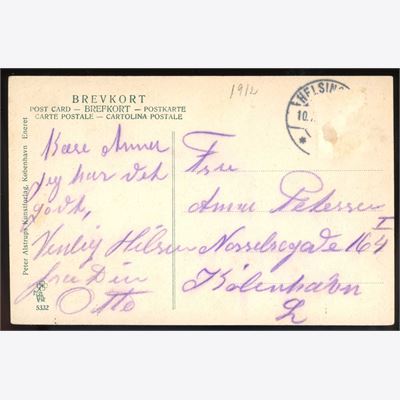 BREVKORT
POST CARD — BREFKORT — POSTKARTE
CARTE POSTALE — CARTOLINA POSTALE
1912
HELSING
10.
Kære Anna
Jeg har det
godt,
Venlig Hilsen
fra Din
Otto
Fru
Anna Petersen
I
164
København
L
Peter Alstrups Kunstforlag, København Eneret
5332